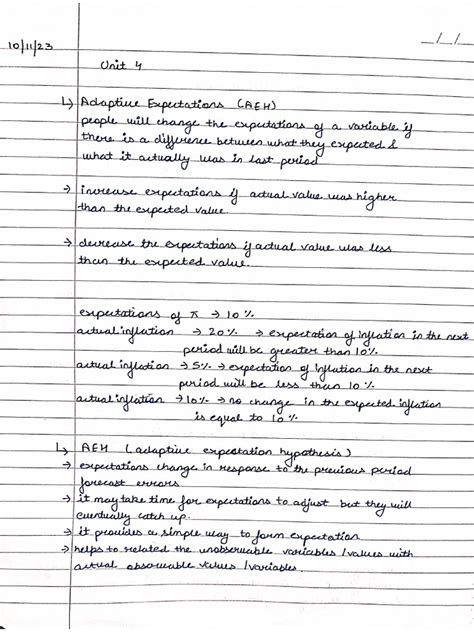 10/11/23
_/_/_
Unit 4
↳ Adaptive Expectations (AEH)
people will change the expectations of a variable if
there is a difference between what they expected &
what it actually was in last period
→ increase expectations if actual value was higher
than the expected value.
→ decrease the expectations if actual value was less
than the expected value.
expectations of π → 10%
actual inflation → 20% → expectation of inflation in the next
period will be greater than 10%
actual inflation → 5% → expectation of inflation in the next
period will be less than 10%
actual inflation → 10% → no change in the expected inflation
is equal to 10%
↳ AEH (adaptive expectation hypothesis)
→ expectations change in response to the previous period
forecast errors.
→ it may take time for expectations to adjust but they will
eventually catch up.
→ it provides a simple way to form expectation
→ helps to related the unobservable variables /values with
actual observable values /variables.